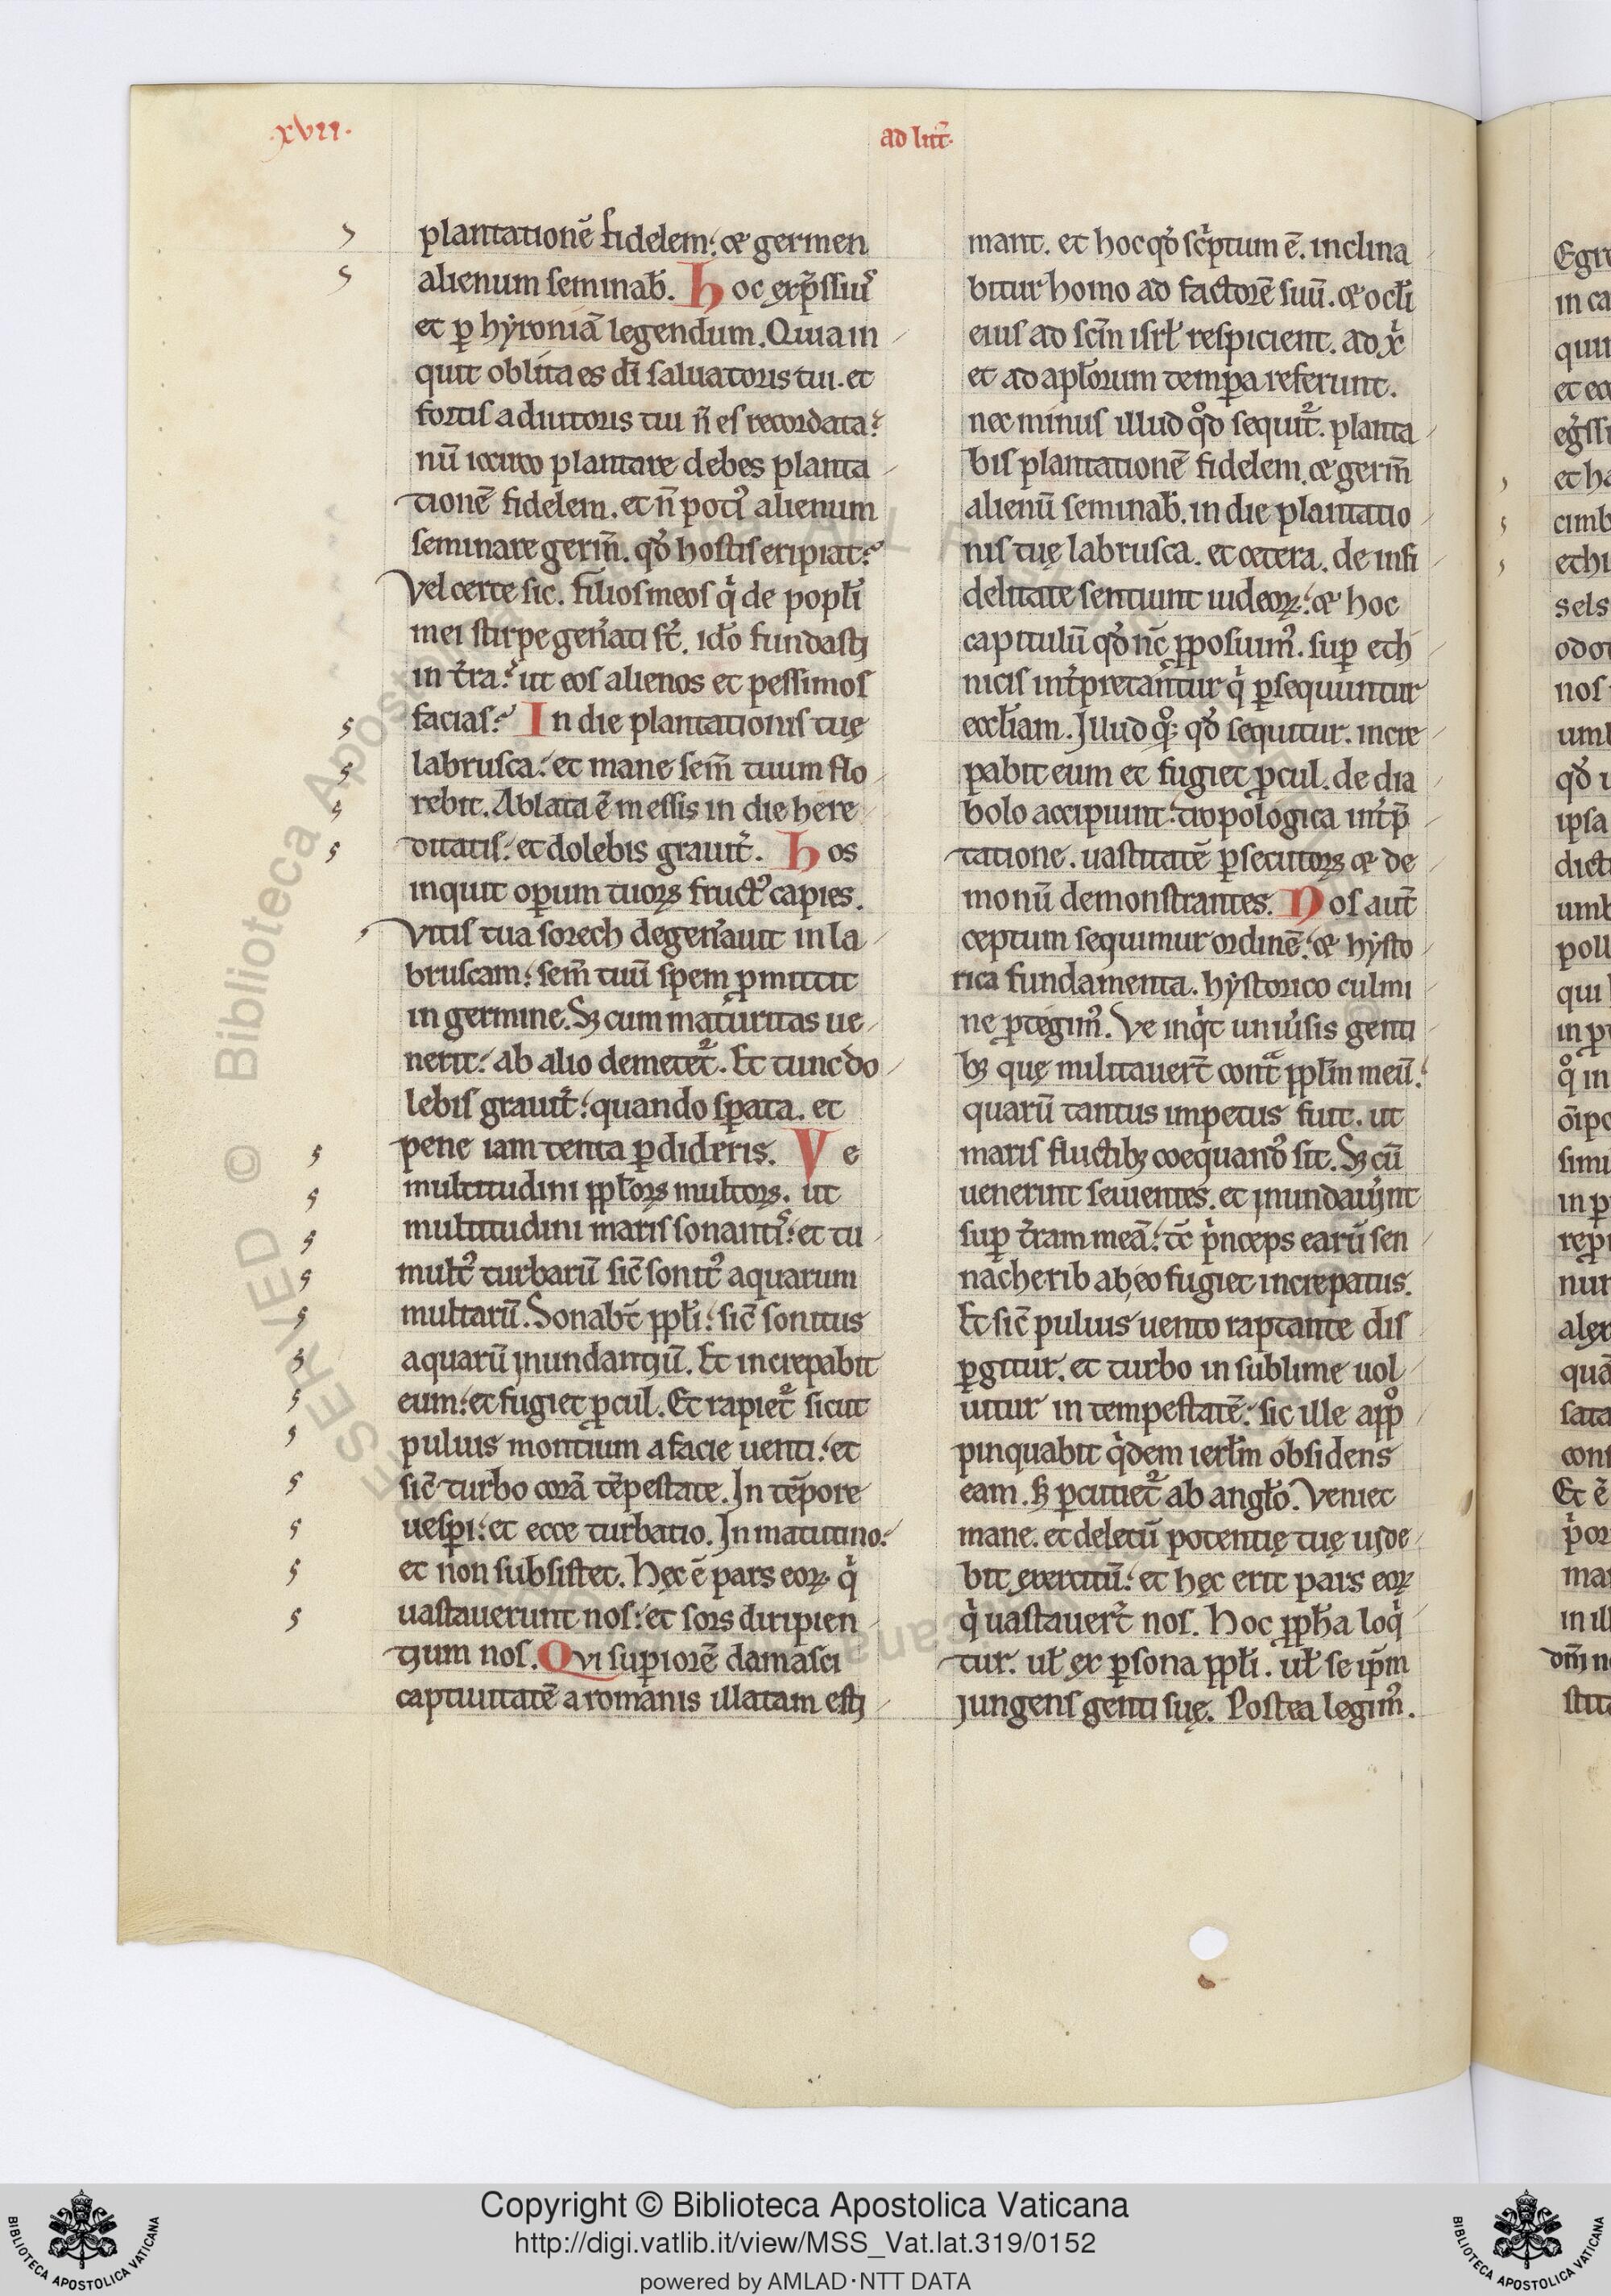 ·xvii·
ad litt̄·
plantationē fidelem: & germen
alienum seminab̄. Hoc exp̄ssiuˢ
et ꝑ hẏroniā legendum. Quia in
quit oblita es dī saluatoris tui. et
fortis adiutoris tui n̄ es recordata?
nū iccirco plantare debes planta
tionē fidelem. et n̄ potiꝰ alienum
seminare germ̄. qđ hostis eripiat?
Vel certe sic. Filios meos qͥ de popłi
mei stirpe gen̓ati sť. iđo fundasti
in t̓ra? ut eos alienos et pessimos
facias? In die plantationis tuę
labrusca: et mane sem̄ tuum flo
rebit. Ablata ē messis in die here
ditatis: et dolebis grauit̓. Hos
inquit oꝑum tuoꝝ fructꝰ capies.
Vitis tua sorech degen̓auit in la
bruscam: sem̄ tuū spem ꝓmittit
in germine. Sꝫ cum maturitas ue
nerit: ab alio demetet᷑. Et tunc do
lebis grauit̓: quando sꝑata. et
pene iam tenta ꝑdideris. Ve
multitudini ppłoꝝ multoꝝ. ut
multitudini maris sonantiˢ: et tu
multꝰ turbarū sic̄ sonitꝰ aquarum
multarū. Sonabt̄ ppłi: sic̄ sonitus
aquarū inundantiū. Et increpabit
eum: et fugiet ꝓcul. Et rapiet᷑ sicut
puluis montium a facie uenti: et
sic̄ turbo corā tēpestate. In tēpore
uesꝑi: et ecce turbatio. In matutino:
et non subsistet. Hęc ē pars eoꝝ qͥ
uastauerunt nos: et sors diripien
tium nos. Qvi suꝑiorē damasci
captiuitatē a romanis illatam esti
mant. et hoc qđ scͥptum ē. inclina
bitur homo ad factorē suū. & ocłi
eius ad scm̄ isrł respicient. ad xͥ
et ad apłorum tempa referunt.
nec minus illud qͦd sequit᷑. planta
bis plantationē fidelem. & germ̄
alienū seminab̄. in die plantatio
nis tuę labrusca. et cetera. de infi
delitate sentiunt iudeoꝝ: & hoc
capitulū qđ nc̄ ꝓposuimꝰ. suꝑ eth
nicis int̓pretantur qͥ ꝑsequuntur
eccłiam. Illud qͦqꝫ qđ sequitur. incre
pabit eum et fugiet ꝓcul. de dia
bolo accipiunt: tropologica int̓p̄
tatione. uastitatē ꝑsecutoꝝ & de
monū demonstrantes. Nos aut̄
ceptum sequimur ordinē: & hẏsto
rica fundamenta. hẏstorico culmi
ne ꝓtegimꝰ. Ve inqͥt uniu̓sis genti
bꝫ quę militauert̄ contͣ ppłm meū:
quarū tantus impetus fuit. ut
maris fluctibꝫ coequandꝰ sit. Sꝫ cū
uenerint seuientes. et inundauerint
suꝑ t̓ram meā: tc̄ pͥnceps earū sen
nacherib ab eo fugiet increpatus.
Et sic̄ puluis uento raptante dis
ꝑgitur. et turbo in sublime uol
uitur in tempestatē: sic ille appͦ
pinquabit qͥdem ierłm obsidens
eam. sꝫ ꝑcutiet᷑ ab angło. Veniet
mane. et deletū potentię tuę uide
bit exercitū: et hęc erit pars eoꝝ
qͥ uastauert̄ nos. Hoc ꝓpha loqͥ
tur. uł ex ꝑsona ppłi. uł se ip̄m
iungens genti suę. Postea legimꝰ.
Copyright © Biblioteca Apostolica Vaticana
http://digi.vatlib.it/view/MSS_Vat.lat.319/0152
powered by AMLAD·NTT DATA